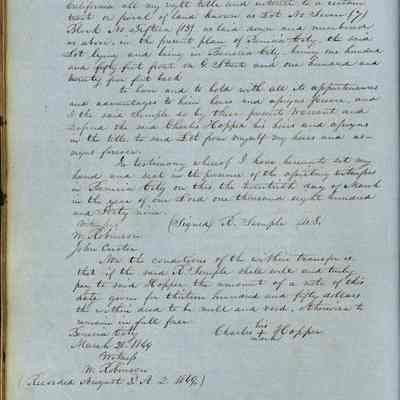 California all my right title and interest to a certain
tract or parcel of land known as Lot No Seven (7)
Block No Fifteen (15) as laid down and numbered
as above in the present plan of Benicia City the said
Lot lying and being in Benicia City being one hundred
and fifty feet front on G Street and one hundred and
twenty five feet back
to have and to hold with all its appurtenances
and advantages to him heirs and assigns forever, and
I the said Semple do by these presents Warrant and
Defend the said Charles Hopper his heirs and assigns
in the title to said Lot from myself my heirs and as-
signs forever.
In testimony whereof I have hereunto set my
hand and seal in the presence of the aforesaid witnesses
in Benicia City on this the twentieth day of March
in the year of our Lord one thousand eight hundred
and Forty nine.
Witness (Signed) R. Semple
W. Robinson
John Custer
Now the conditions of the within transfer is
that if the said R. Semple shall well and truly
pay to said Hopper the amount of a note of this
date given for thirteen hundred and fifty dollars
the within deed to be null and void, otherwise to
remain in full force
Benicia City his
March 20th 1849 Charles + Hopper
Witness mark
W. Robinson
(Recorded August 3d A. D. 1849,)